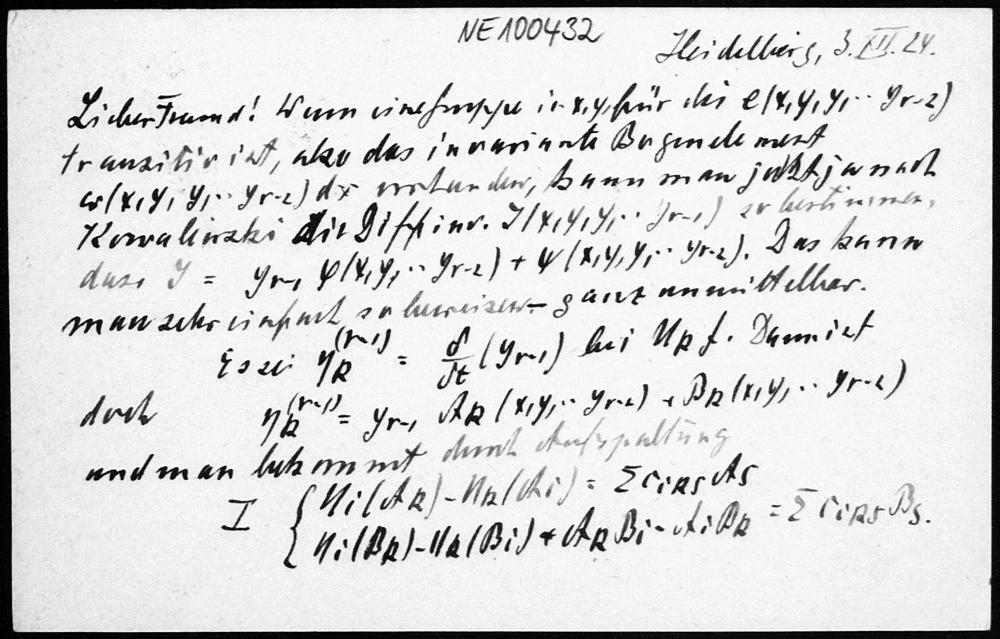 NE100432
Heidelberg, 3. XII. 24.
Lieber Freund! Wenn eine Gruppe in x,y für die e(x,y,y₁·· yᵣ₋₂)
transitiv ist, also das invariante Bogenelement
ω(x,y,y₁·· yᵣ₋₂)dx vorhanden, kann man jetzt ja nach
Kowalewski die Diffinv. J(x,y,y₁·· yᵣ₋₁) so bestimmen,
dass J = yᵣ₋₁ φ(x,y,·· yᵣ₋₂) + ψ(x,y,y₁·· yᵣ₋₂). Das kann
man sehr einfach so beweisen – ganz unmittelbar.
Es sei ηₖ⁽ʳ⁻¹⁾ = δ/δt (yᵣ₋₁) bei Uₖf. Dann ist
doch ηₖ⁽ʳ⁻¹⁾ = yᵣ₋₁ Aₖ(x,y,·· yᵣ₋₂) + Bₖ(x,y,·· yᵣ₋₂)
und man bekommt durch Aufspaltung
I { Uᵢ(Aₖ) – Uₖ(Aᵢ) = Σcᵢₖₛ Aₛ
Uᵢ(Bₖ) – Uₖ(Bᵢ) + AₖBᵢ – AᵢBₖ = Σcᵢₖₛ Bₛ.